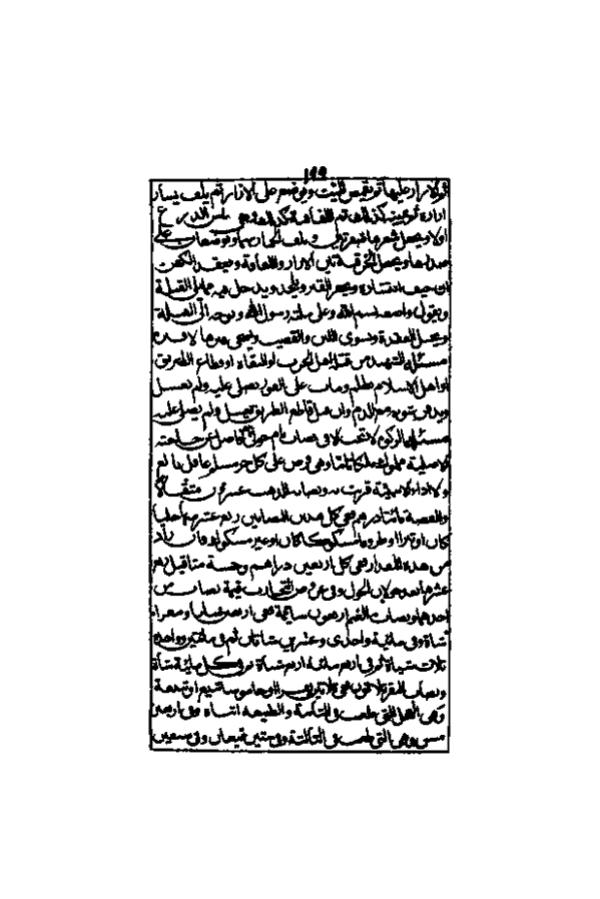 ١٩٩
ثم الازار عليها ثم يقمص الميت ويوضع على الازار ثم يلف يسار
ازاره ثم يمينه كذلك ثم اللفافة كذلك وهي تلبس الدرع
اولا ويجعل شعرها ضفيرتين ويلف الخمار بها وتوضعان على
صدرها ويجعل الخرقة بين الازار واللفافة ويعقد الكفن
ان خيف انتشاره ويحفر القبر ويلحد ويدخل فيه مما يلي القبلة
ويقول واضعه بسم الله وعلى ملة رسول الله ويوجه الى القبلة
ويحل العقدة ويسوى اللبن والقصب
مسئلة الشهيد من قتله اهل الحرب او البغاة او قطاع الطريق
او اهل الاسلام بظلم ومات على الفور يصلى عليه ولم يغسل
ويدفن بثوبه مع الدم وان قتل قاطع الطريق يغسل ولم يصل عليه
مسئلة الزكوة لا تجب الا في نصاب تام حولي فاضل عن حاجته
الاصلية مملوك ملكا تاما وهي فرض على كل حر مسلم عاقل بالغ
ولا اداء الا بنية قرنت به ونصاب الذهب عشرون مثقالا
والفضة مائتا درهم ففي كل هذين النصابين ربع عشرهما حليا
كان او تبرا او ظروفا مسكوكا كان او غير مسكوك فان زاد
من هذه المقدار ففي كل اربعين دراهم وخمسة مثاقيل ربع
عشرهما بعد حولان الحول وفي عروض التجارة قيمة نصاب من
احدهما ونصاب الغنم اربعون سائمة ففي اربعين ضانا ومعزا
شاة وفي مائة واحدى وعشرين شاتان ثم في مائتين وواحدة
ثلاث شياة ثم في اربع مائة اربع شاة ثم في كل مائة شاة
ونصاب البقر ثلاثون ففي ثلاثين بقرا او جاموسا تبيع او تبيعة
وهي العجل التي طعنت في الثانية والطبيعه انثاه وفي اربعين
مسن وهي التي طعنت في الثالثة وفي ستين تبيعان وفي سبعين